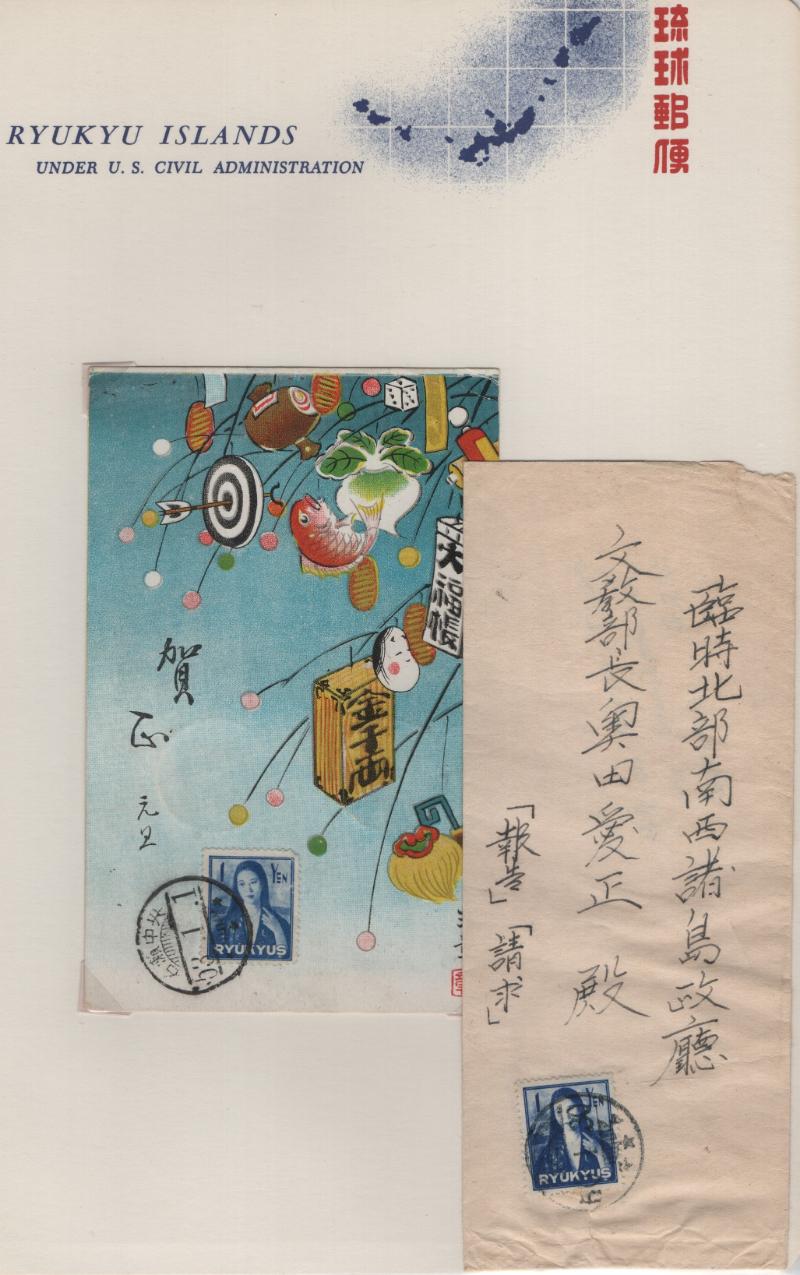 RYUKYU ISLANDS
UNDER U. S. CIVIL ADMINISTRATION
琉球郵便
大福帳
金千両
賀
正
元旦
1 YEN
RYUKYUS
臨時北部南西諸島政廳
文教部長奥田愛正 殿
「報告」「請求」
1 YEN
RYUKYUS